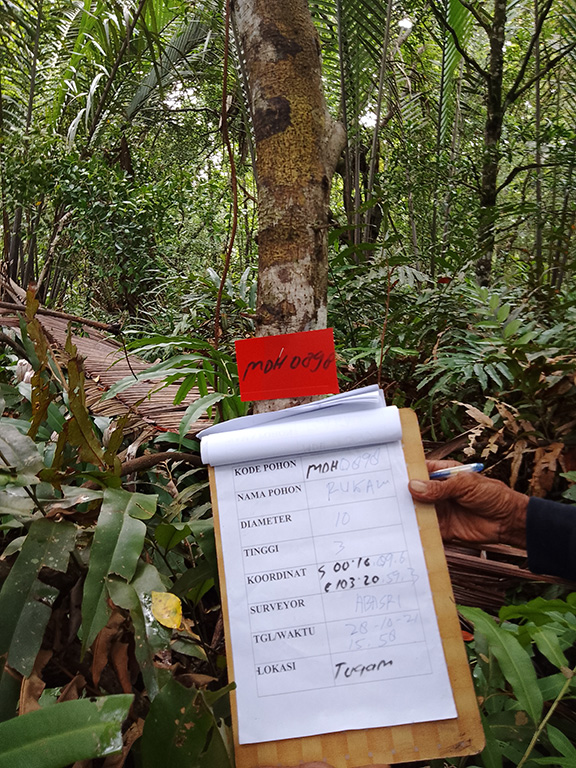 MDH 0898
KODE POHON MDH0898
NAMA POHON RUKAM
DIAMETER 10
TINGGI 3
KOORDINAT S 00°16'59.6
E 103°20'59.3
SURVEYOR ABASRI
TGL/WAKTU 28-10-21
15:58
LOKASI Tugam